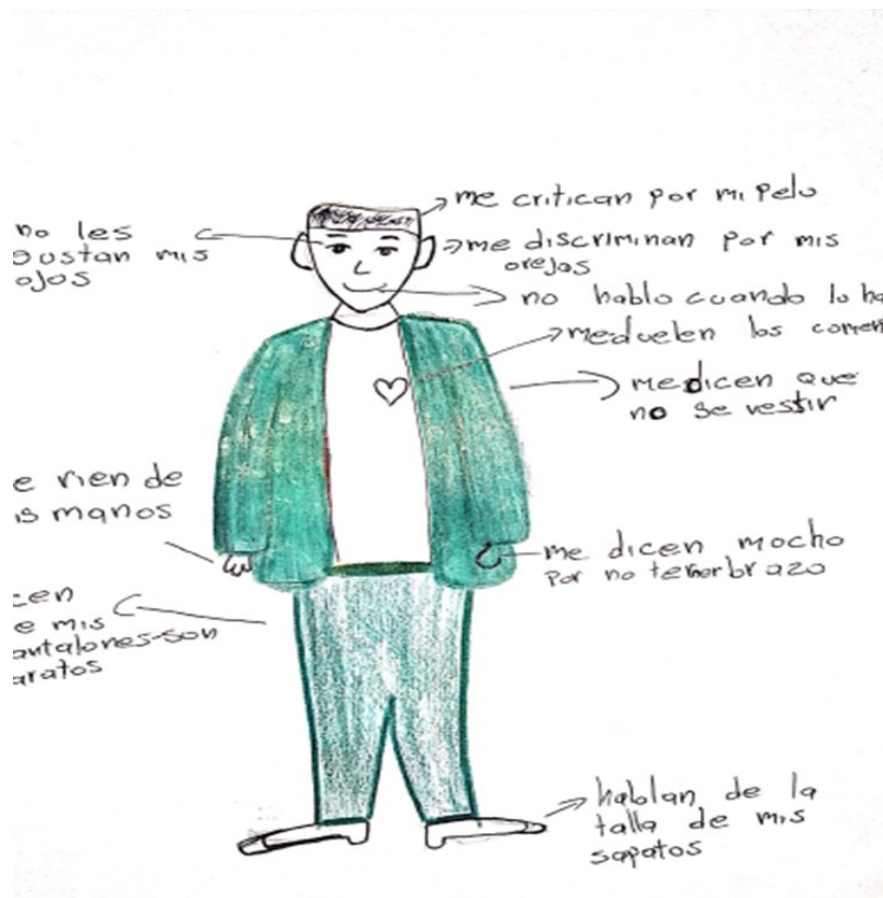 me critican por mi pelo
no les
gustan mis
ojos
me discriminan por mis
orejas
no hablo cuando lo
me duelen los
me dicen que
no se vestir
rien de
manos
me dicen mocho
por no tener brazo
mis
son
hablan de la
talla de mis
sapatos